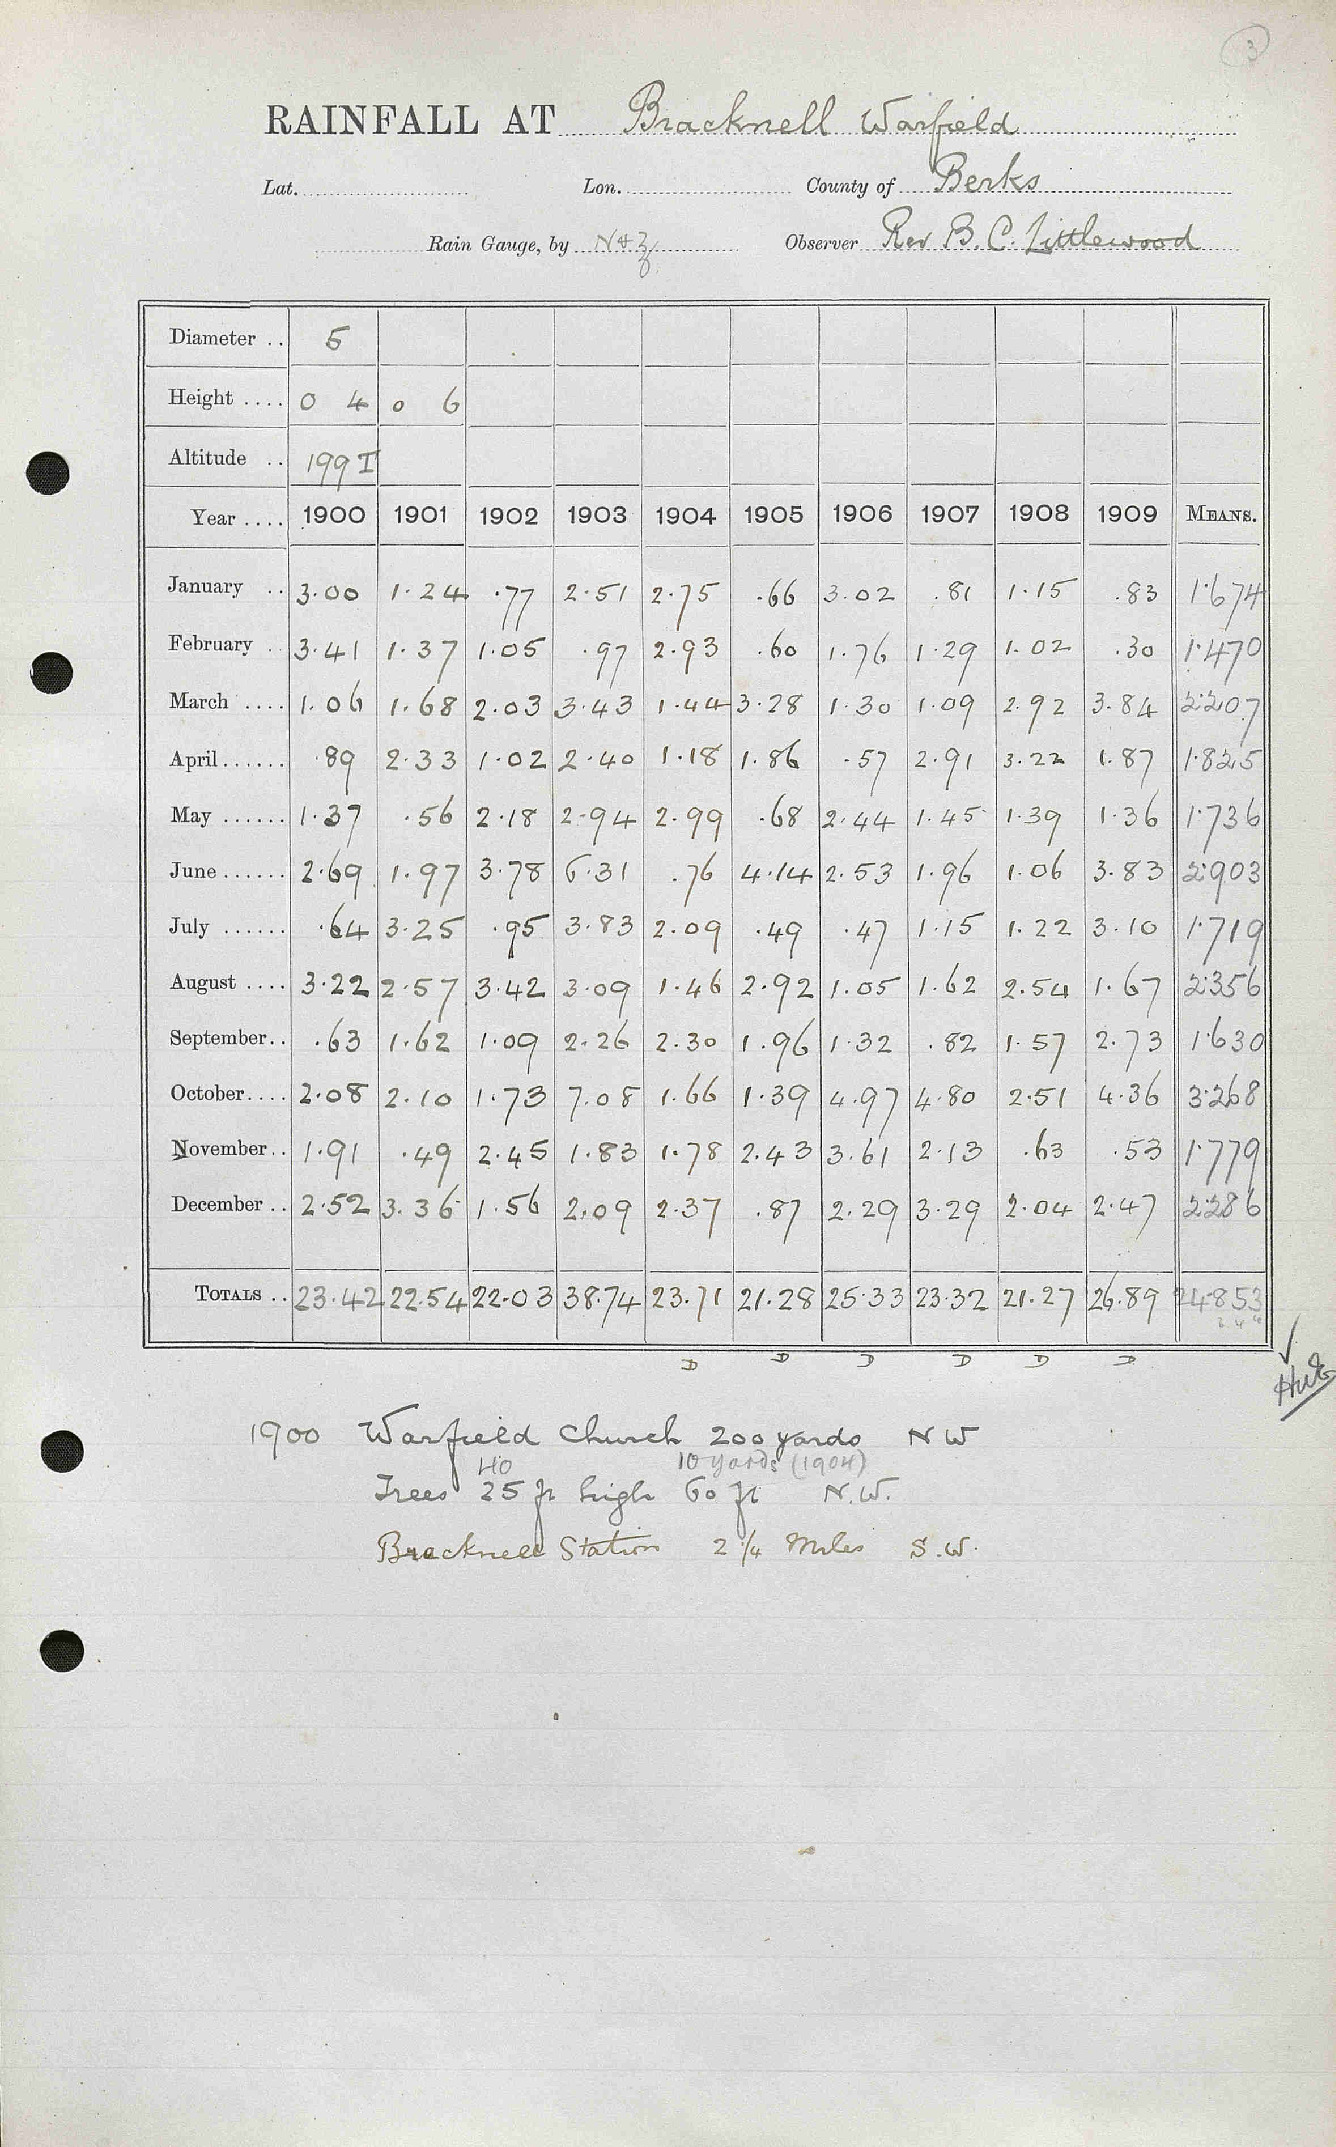 3
RAINFALL AT Bracknell Warfield
Lat. Lon. County of Berks
Rain Gauge, by N & Z Observer Rev B. C. Littlewood
Diameter .. 5
Height .... 0 4 0 6
Altitude .. 199 T
Year .... 1900 1901 1902 1903 1904 1905 1906 1907 1908 1909 MEANS.
January .. 3.00 1.24 .77 2.51 2.75 .66 3.02 .81 1.15 .83 1.674
February .. 3.41 1.37 1.05 .97 2.93 .60 1.76 1.29 1.02 .30 1.470
March .... 1.06 1.68 2.03 3.43 1.44 3.28 1.30 1.09 2.92 3.84 2.207
April ...... .89 2.33 1.02 2.40 1.18 1.86 .57 2.91 3.22 1.87 1.825
May ...... 1.37 .56 2.18 2.94 2.99 .68 2.44 1.45 1.39 1.36 1.736
June ...... 2.69 1.97 3.78 6.31 .76 4.14 2.53 1.96 1.06 3.83 2.903
July ...... .64 3.25 .95 3.83 2.09 .49 .47 1.15 1.22 3.10 1.719
August .... 3.22 2.57 3.42 3.09 1.46 2.92 1.05 1.62 2.54 1.67 2.356
September .. .63 1.62 1.09 2.26 2.30 1.96 1.32 .82 1.57 2.73 1.630
October .... 2.08 2.10 1.73 7.08 1.66 1.39 4.97 4.80 2.51 4.36 3.268
November .. 1.91 .49 2.45 1.83 1.78 2.43 3.61 2.13 .63 .53 1.779
December .. 2.52 3.36 1.56 2.09 2.37 .87 2.29 3.29 2.04 2.47 2.286
TOTALS .. 23.42 22.54 22.03 38.74 23.71 21.28 25.33 23.32 21.27 26.89 24.853
D D D D D D
1900 Warfield Church 200 yards NW
40 10 yards (1904)
Trees 25 ft high 60 ft N.W.
Bracknell Station 2 1/4 Miles S.W.